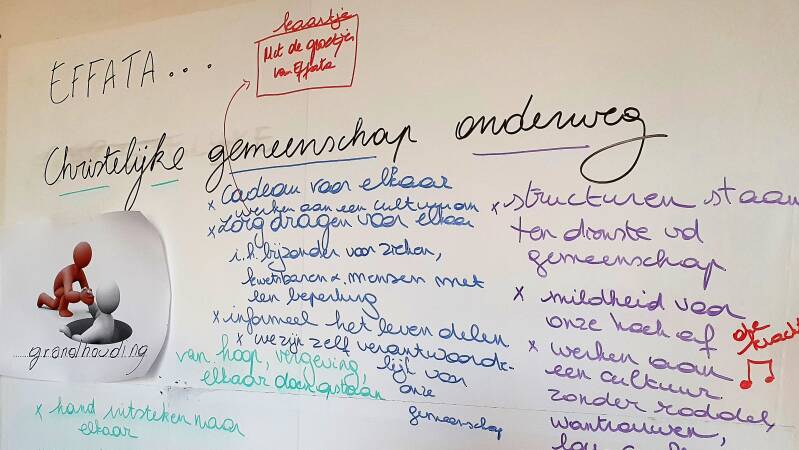 EFFATA...
kaartje
Met de groetjes
van Effata
Christelijke gemeenschap onderweg
x cadeau voor elkaar
x werken aan een cultuur
x zorg dragen voor elkaar
i.h. bijzonder voor zieken,
kwetsbaren &. mensen met
een beperking
x informeel het leven delen
x we zijn zelf verantwoorde-
lijk voor
onze
gemeenschap
van hoop, vergeving,
elkaar
......grondhouding
x hand uitsteken naar
elkaar
x structuren staan
ten dienste vd
gemeenschap
x mildheid voor
onze hoek af
kracht
x werken aan
een cultuur
zonder roddel,
wantrouwen,